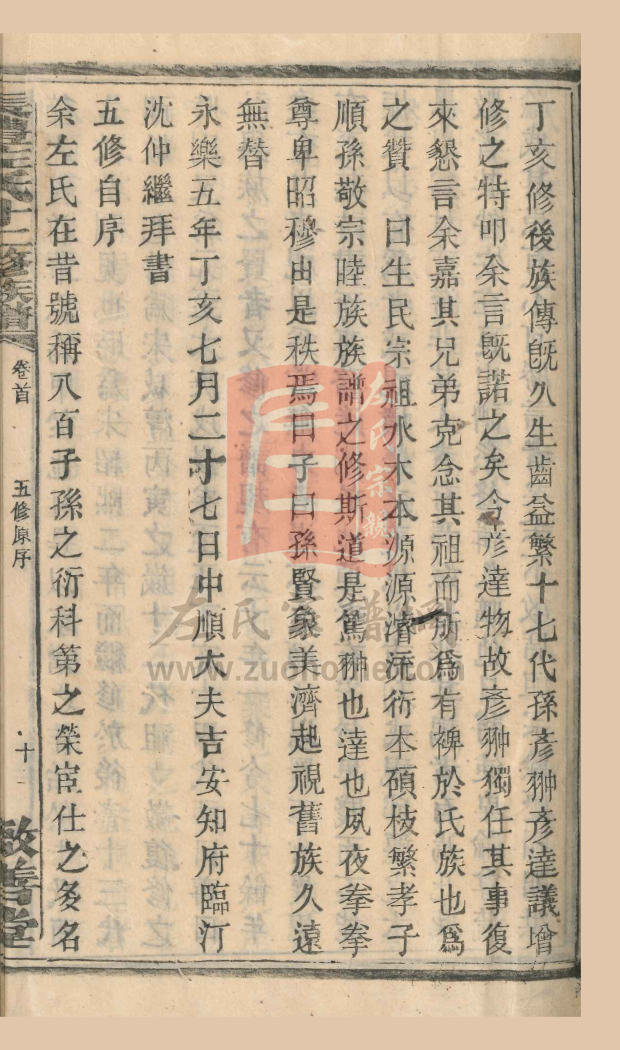 丁亥修後族傳既久生齒益繁十七代孫彥翀彥達議增
修之特叩余言既諾之矣今彥達物故彥翀獨任其事復
來懇言余嘉其兄弟克念其祖而所爲有裨於氏族也爲
之贊以 曰生民宗祖水木本源源濬流衍本碩枝繁孝子
順孫敬宗睦族族譜之修斯道是篤翀也達也夙夜拳拳
尊卑昭穆由是秩焉曰子曰孫賢象美濟起視舊族久遠
無替
永樂五年丁亥七月二十七日中順大夫吉安知府臨汀
沈仲繼拜書
五修自序
余左氏在昔號稱八百子孫之衍科第之榮宦仕之多名
左氏十二修族譜
卷首
五修原序
十
敬善堂
左氏宗譜
www.zuohome.com